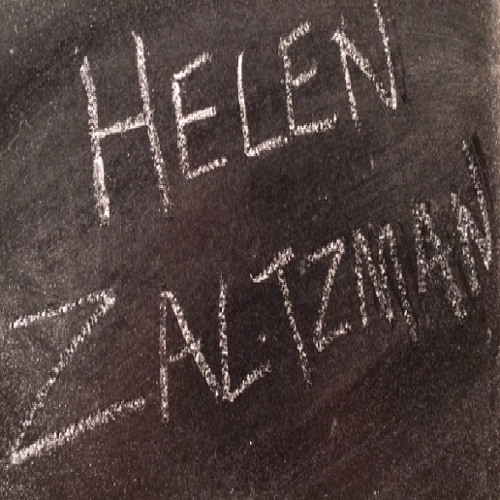 HELEN
ZALTZMAN